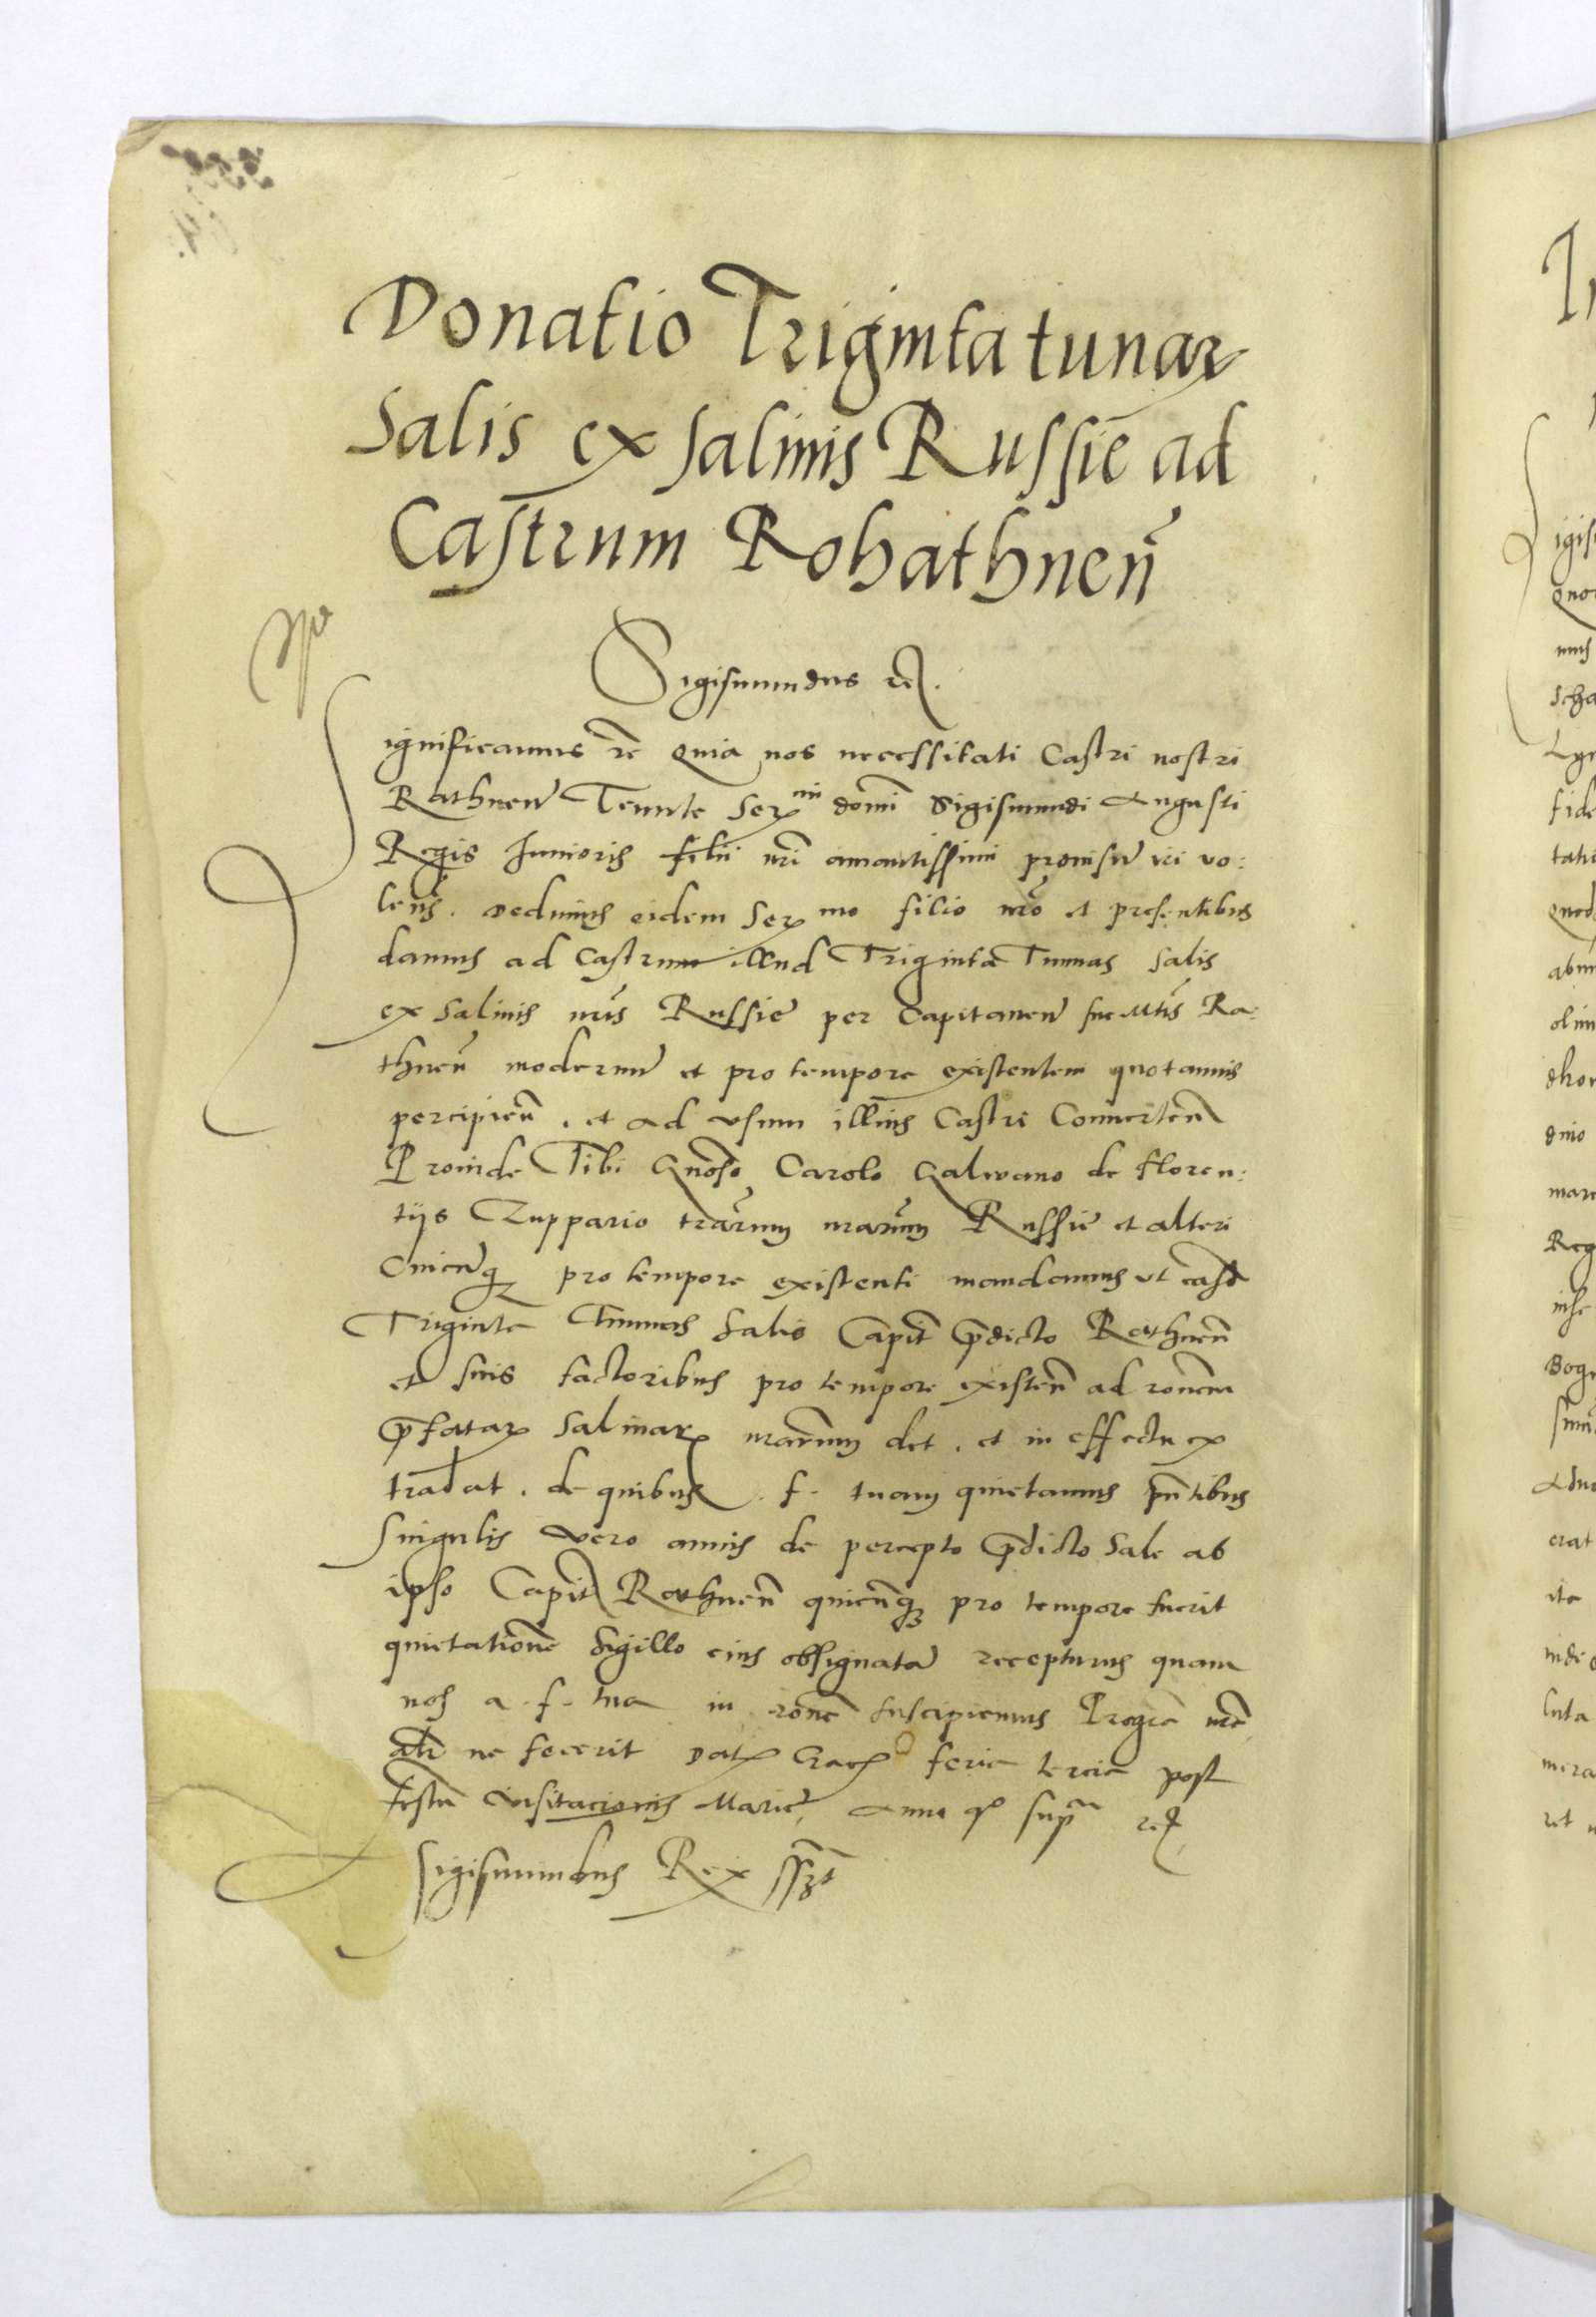 Donatio Triginta tunar
Salis ex salinis Russie ad
Castrum Rohathnen̄
Sigismundus etc.
Significamus etc quia nos necessitati Castri nostri
Rathnen Tenute Ser mi domi Sigismundi Augusti
Regis Junioris filii nri amantissimi provisu iri vo:
lens. Dedimus eidem Ser mo filio nro et presentibus
damus ad Castrum illud Triginta Tunnas salis
ex salinis nris Russie per Capitaneu sue Mtis Ra:
thnen modernu et pro tempore existentem quotannis
percipien. et ad usum illius Castri Conuerten
Proinde Tibi Gnoso Carolo Galwano de Floren:
tijs Zuppario trarum nrarum Russie et alteri
Cuicunq pro tempore existenti mandamus ut easd
Triginta Tunnas Salis Capit pdicto Rathnen
et suis factoribus pro tempore existen ad ronem
pfatar Salinar nrarum det. et in effectu ex
tradat. de quibus. f. tuam quietamus pntibus
Singulis vero annis de percepto pdicto Sale ab
ipso Capit Rathnen quicunq pro tempore fuerit
quietatione sigillo eius obsignata recepturus quam
nos a. f. tua in rone suscipiemus Pro gra nra
alr ne fecerit Dat Crac feria tercia post
festu visitacionis Marie, Anno q supra etc
Sigismundus Rex sszt